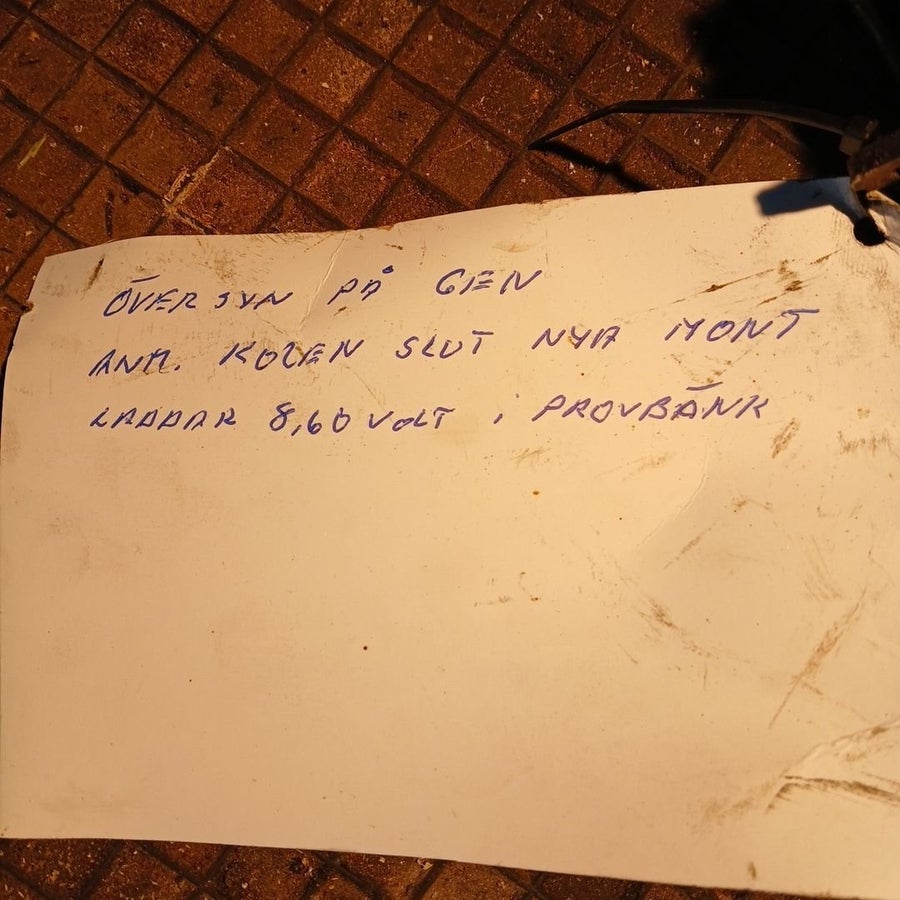 ÖVERSYN PÅ GEN
ANM. KOLEN SLUT NYA MONT
LADDAR 8,60 VOLT i PROVBÄNK